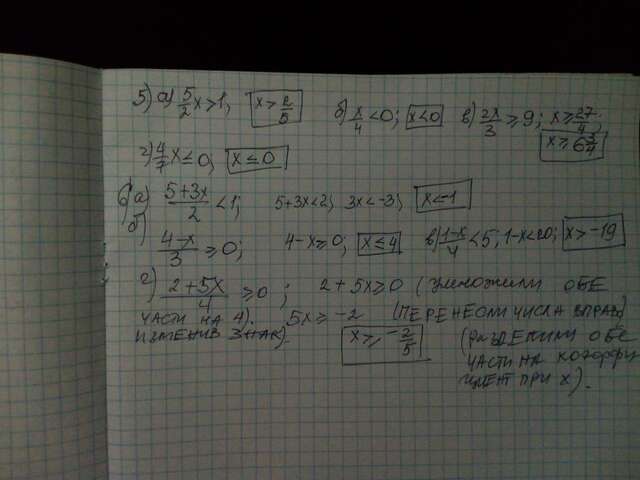 5) а) 5/2 x>1; x> 2/5 б) x/4 <0; x<0 в) 2x/3 ≥9; x≥ 27/4; x≥ 6 3/4
г) 4/7 x≤0; x≤0
6) а) 5+3x/2 <1; 5+3x<2; 3x<-3; x<-1
б) 4-x/3 ≥0; 4-x≥0; x≤4 в) 1-x/4 <5; 1-x<20; x>-19
г) 2+5x/4 ≥0; 2+5x≥0 (умножили обе
части на 4). 5x≥-2 (перенесли числа вправо
изменив знак). x≥ -2/5 (разделили обе
части на коэффи
циент при x).